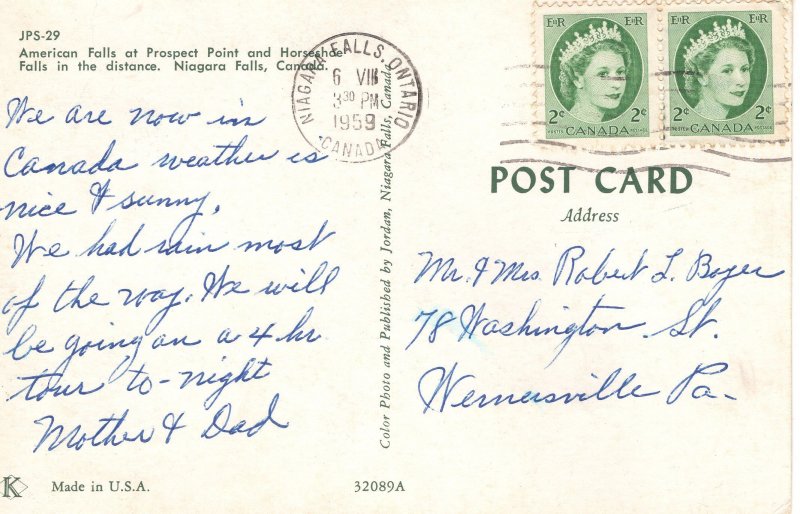 JPS-29
American Falls at Prospect Point and Horseshoe
Falls in the distance. Niagara Falls, Canada.
We are now in
Canada weather is
nice & sunny.
We had rain most
of the way. We will
be going on a 4 hr
tour to-night
Mother & Dad
K
Made in U.S.A.
32089A
NIAGARA FALLS, ONTARIO
6 VIII
3 30 PM
1959
CANADA
Color Photo and Published by Jordan, Niagara Falls, Canada
E II R E II R
2¢ 2¢
POSTES CANADA POSTAGE
E II R E II R
2¢ 2¢
POSTES CANADA POSTAGE
POST CARD
Address
Mr. & Mrs. Robert L. Boyer
78 Washington St.
Wernersville Pa-